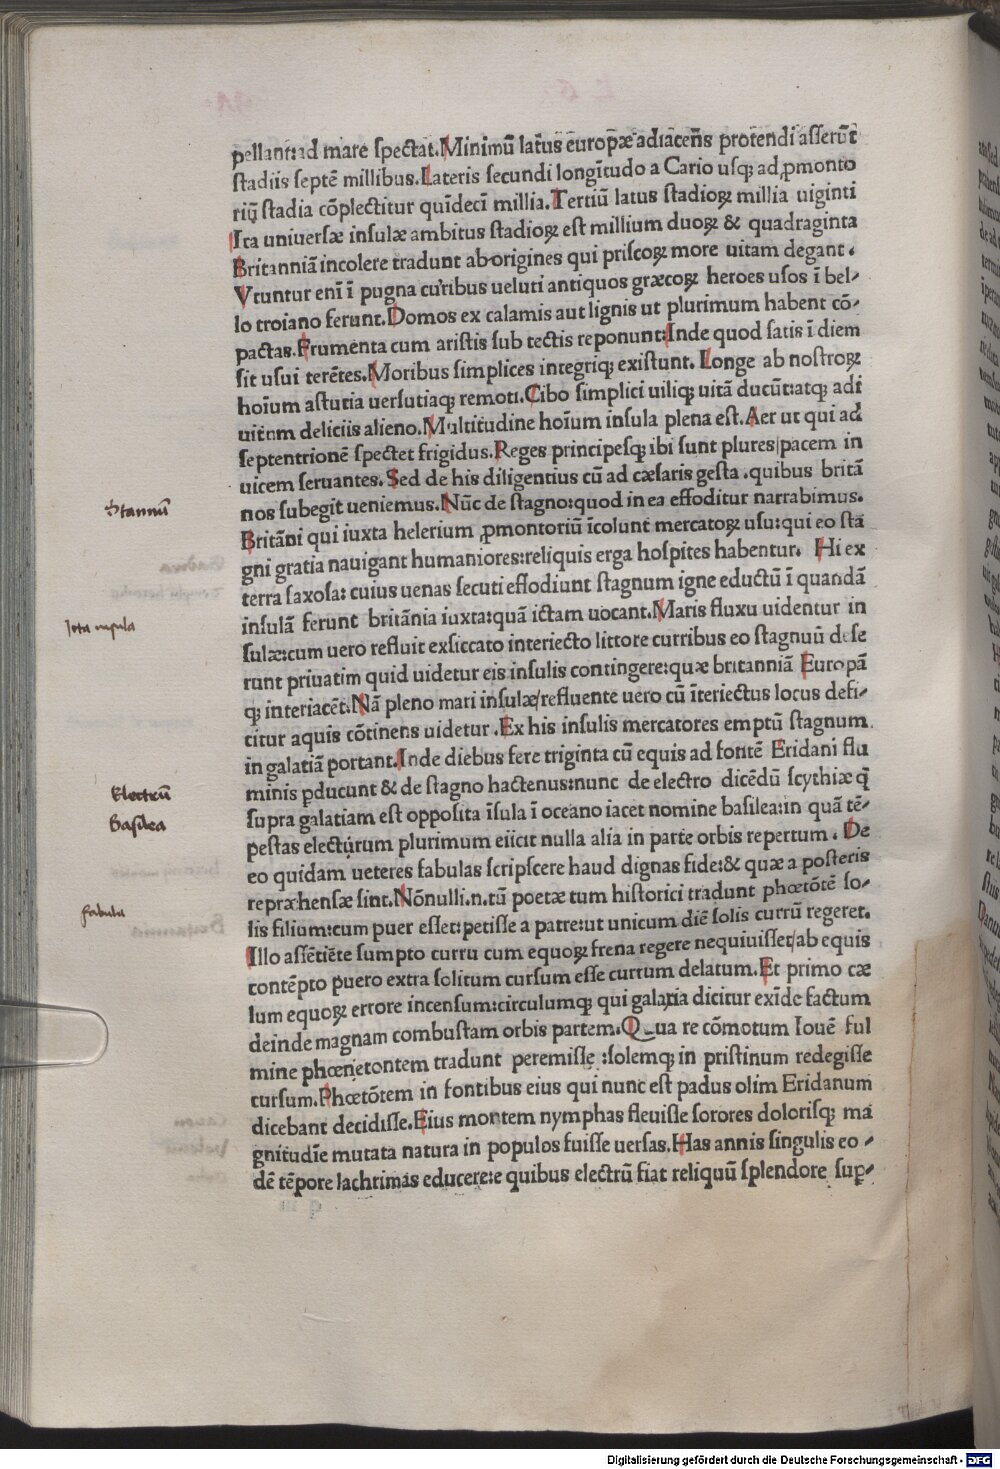 pellant:ad mare spectat.Minimũ latus europæ adiacens protendi asserũt
stadiis septẽ millibus.Lateris secundi longitudo a Cario usqꝫ ad ꝓmonto
riũ stadia cõplectitur quĩdecĩ millia.Tertiũ latus stadioꝝ millia uiginti
Ita uniuersæ insulæ ambitus stadioꝝ est millium duoꝝ & quadraginta
Britanniã incolere tradunt aborigines qui priscoꝝ more uitam degant.
Vtuntur enĩ ĩ pugna curribus ueluti antiquos græcoꝝ heroes usos ĩ bel-
lo troiano ferunt.Domos ex calamis aut lignis ut plurimum habent cõ-
pactas.Frumenta cum aristis sub tectis reponunt:Inde quod satis ĩ diem
sit usui terẽtes.Moribus simplices integriqꝫ existunt. Longe ab nostroꝝ
hoĩum astutia uersutiaqꝫ remoti.Cibo simplici uiliqꝫ uitã ducũt:atqꝫ adi
uitum deliciis alieno.Multitudine hoĩum insula plena est.Aer ut qui ad
septentrionẽ spectet frigidus.Reges principesqꝫ ibi sunt plures|pacem in
uicem seruantes. Sed de his diligentius cũ ad cæsaris gesta .quibus britã
nos subegit ueniemus.Nũc de stagno:quod in ea effoditur narrabimus.
Stannũ
Britãni qui iuxta helerium ꝓmontoriũ ĩcolunt mercatoꝝ usu:qui eo sta
gni gratia nauigant humaniores:reliquis erga hospites habentur. Hi ex
terra saxosa: cuius uenas secuti effodiunt stagnum igne eductũ ĩ quandã
insulã ferunt britãnia iuxta:quã ictam uocant.Maris fluxu uidentur in
Icta insula
sulæ:cum uero refluit exsiccato interiecto littore curribus eo stagnuũ defe
runt priuatim quid uidetur eis insulis contingere:quæ britanniã Europã
qꝫ interiacẽt.Nã pleno mari insulæ/refluente uero cũ ĩteriectus locus defi-
citur aquis cõtinens uidetur .Ex his insulis mercatores emptũ stagnum
in galatiã portant.Inde diebus fere triginta cũ equis ad fontẽ Eridani flu
minis ꝑducunt & de stagno hactenus:nunc de electro dicẽdũ scythiæ q̃
Electrũ
supra galatiam est opposita ĩsula ĩ oceano iacet nomine basilea:in quã tẽ-
Basilea
pestas electurum plurimum eiicit nulla alia in parte orbis repertum. De
eo quidam ueteres fabulas scripscere haud dignas fide:& quæ a posteris
repræhensæ sint.Nõnulli.n.tũ poetæ tum historici tradunt phœtõtẽ so-
Fabula
lis filium:cum puer esset:petisse a patre:ut unicum diẽ solis currũ regeret.
Illo assẽtiẽte sumpto curru cum equoꝝ frena regere nequiuisset/ab equis
contẽpto puero extra solitum cursum esse currum delatum.Et primo cæ
lum equoꝝ errore incensum:circulumqꝫ qui galaxia dicitur exĩde factum
deinde magnam combustam orbis partem.Qua re cõmotum Iouẽ ful
mine phœnetontem tradunt peremisse :solemqꝫ in pristinum redegisse
cursum.Phœtõtem in fontibus eius qui nunc est padus olim Eridanum
dicebant decidisse.Eius mortem nymphas fleuisse sorores dolorisqꝫ ma
gnitudĩe mutata natura in populos fuisse uersas.Has annis singulis eo-
dẽ tẽpore lachrimas educere:e quibus electrũ fiat reliquũ splendore sup-
Digitalisierung gefördert durch die Deutsche Forschungsgemeinschaft - DFG